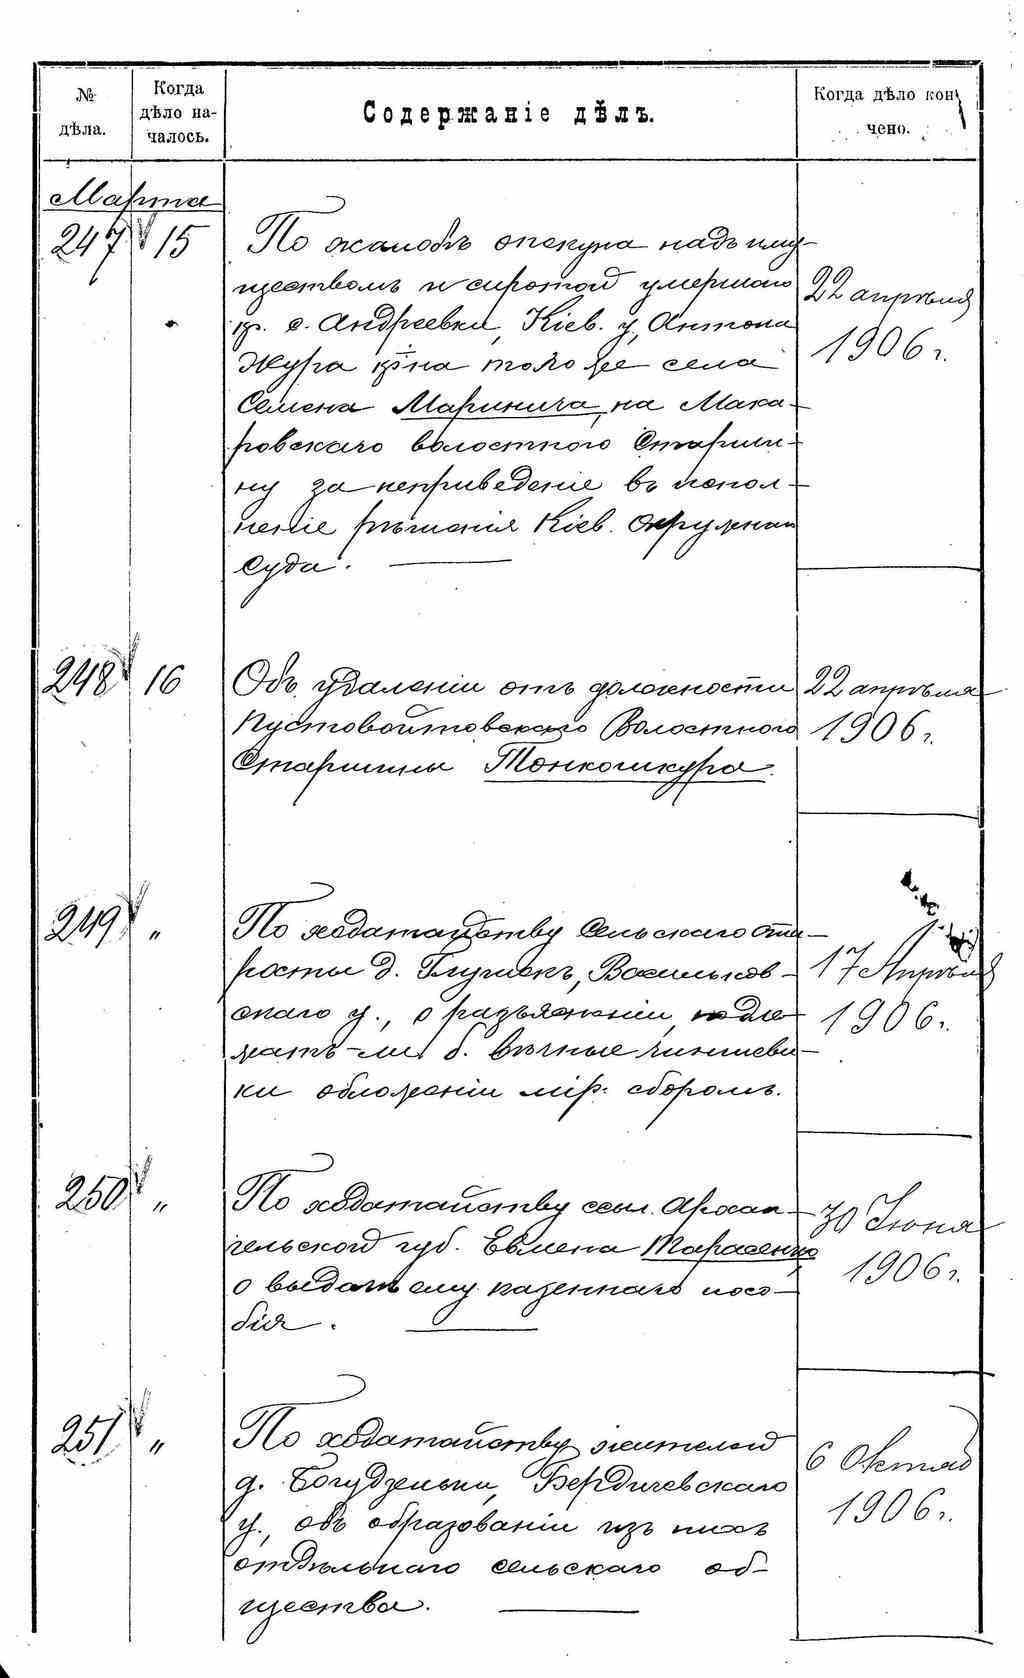 № дѣла.
Когда дѣло началось.
Содержаніе дѣлъ.
Когда дѣло кончено.
Марта
247 15
По жалобѣ опекуна надъ иму-
ществомъ и сиротой умершаго
кр. с. Андреевки, Кіев. у, Антона
Жура кр-на того же села
Семена Маринича, на Мака-
ровскаго волостного Старши-
ну за неприведеніе въ испол-
неніе рѣшенія Кіев. Окружнаго
Суда.
22 апрѣля
1906 г.
248 16
Объ удаленіи отъ должности
Пустовойтовскаго Волостного
Старшины Тонкошкура.
22 апрѣля
1906 г.
249 "
По ходатайству Сельскаго Ста-
росты д. Глушекъ, Васильков-
скаго у., о разъясненіи, подле-
жатъ-ли б. вѣчные чиншеви-
ки обложенію мір. сборомъ.
17 Апрѣля
1906 г.
250 "
По ходатайству ссыл. Архан-
гельской губ. Евмена Тарасенко,
о выдачѣ ему казеннаго посо-
бія.
30 Іюня
1906 г.
251 "
По ходатайству жителей
д. Богудзеньки, Бердичевскаго
у., объ образованіи изъ нихъ
отдѣльнаго сельскаго об-
щества.
6 Октяб
1906 г.